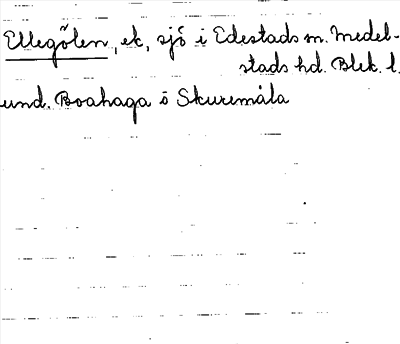 Ellegölen, ek, sjö i Edestads sn. Medel-
stads hd. Blek. l.
und. Boahaga o Skuremåla